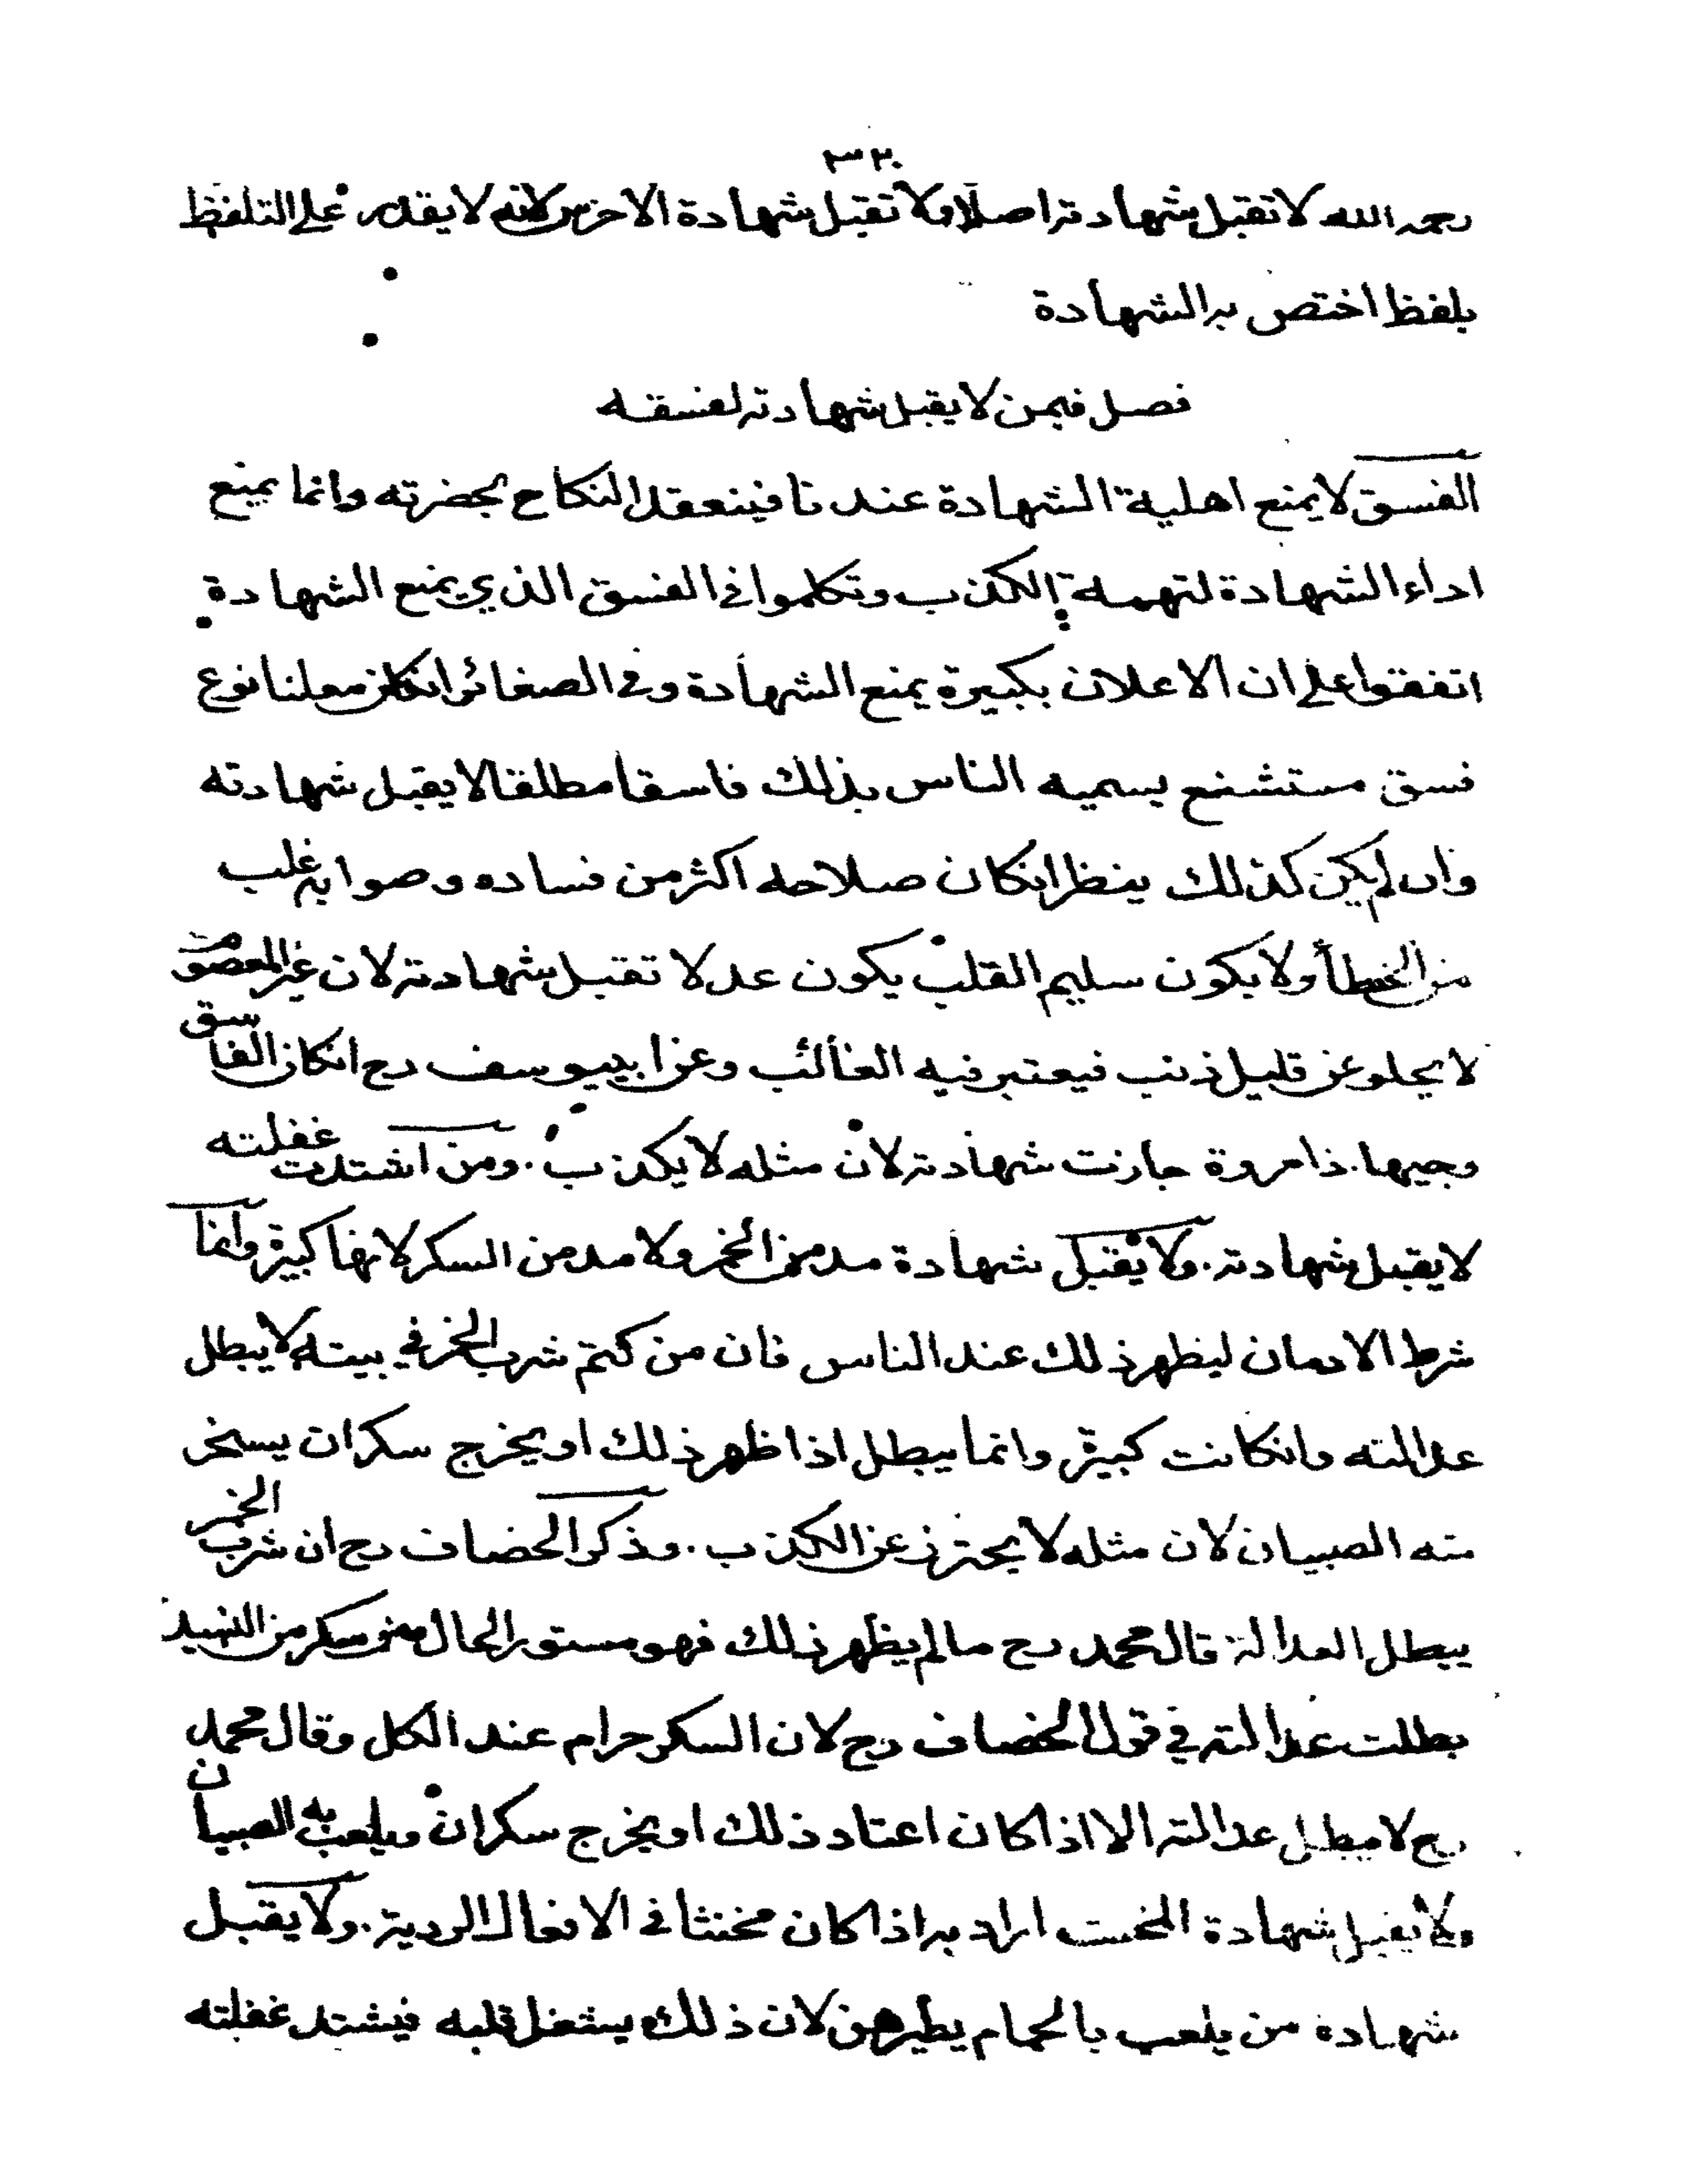 ٣٢٠
رحمه الله لا تقبل شهادته اصلا ولا تقبل شهادة الاخرس لانه لا يقدر على التلفظ
بلفظ اختص به الشهادة
فصل فيمن لا يقبل شهادته لفسقه
الفسق لا يمنع اهلية الشهادة عندنا فينعقد النكاح بحضرته وانما يمنع
اداء الشهادة لتهمة الكذب وتكلموا في الفسق الذي يمنع الشهادة
اتفقوا على ان الاعلان بكبيرة يمنع الشهادة وفي الصغائر انكان معلنا نوع
فسق مستشنع يسميه الناس بذلك فاسقا مطلقا لا يقبل شهادته
وان لم يكن كذلك ينظر انكان صلاحه اكثر من فساده وصوابه غلب
من الخطأ ولا يكون سليم القلب يكون عدلا تقبل شهادته لان غير المعصوم
لا يخلو عن قليل ذنب فيعتبر فيه الغالب وعن ابييوسف رح انكان الفاسق
وجيها ذا مروة جازت شهادته لان مثله لا يكذب . ومن اشتدت غفلته
لا يقبل شهادته . ولا يقبل شهادة مدمن الخمر ولا مدمن السكر لانها كبيرة وانما
شرط الادمان ليظهر ذلك عند الناس فان من كتم شرب الخمر في بيته لا يبطل
عدالته وانكانت كبيرة وانما يبطل اذا ظهر ذلك او يخرج سكران يسخر
منه الصبيان لان مثله لا يحترز عن الكذب . وذكر الخصاف رح ان شرب الخمر
يبطل العدالة قال محمد رح ما لم يظهر ذلك فهو مستور الحال ومن سكر من النبيذ
بطلت عدالته في قول الخصاف رح لان السكر حرام عند الكل وقال محمد
رح لا يبطل عدالته الا اذا كان اعتاد ذلك او يخرج سكران ويلعب به الصبيان
ولا يقبل شهادة المخنث اراد به اذا كان مخنثا في الافعال الردية . ولا يقبل
شهادة من يلعب بالحمام يطيرهن لان ذلك يشغل قلبه فيشتد غفلته